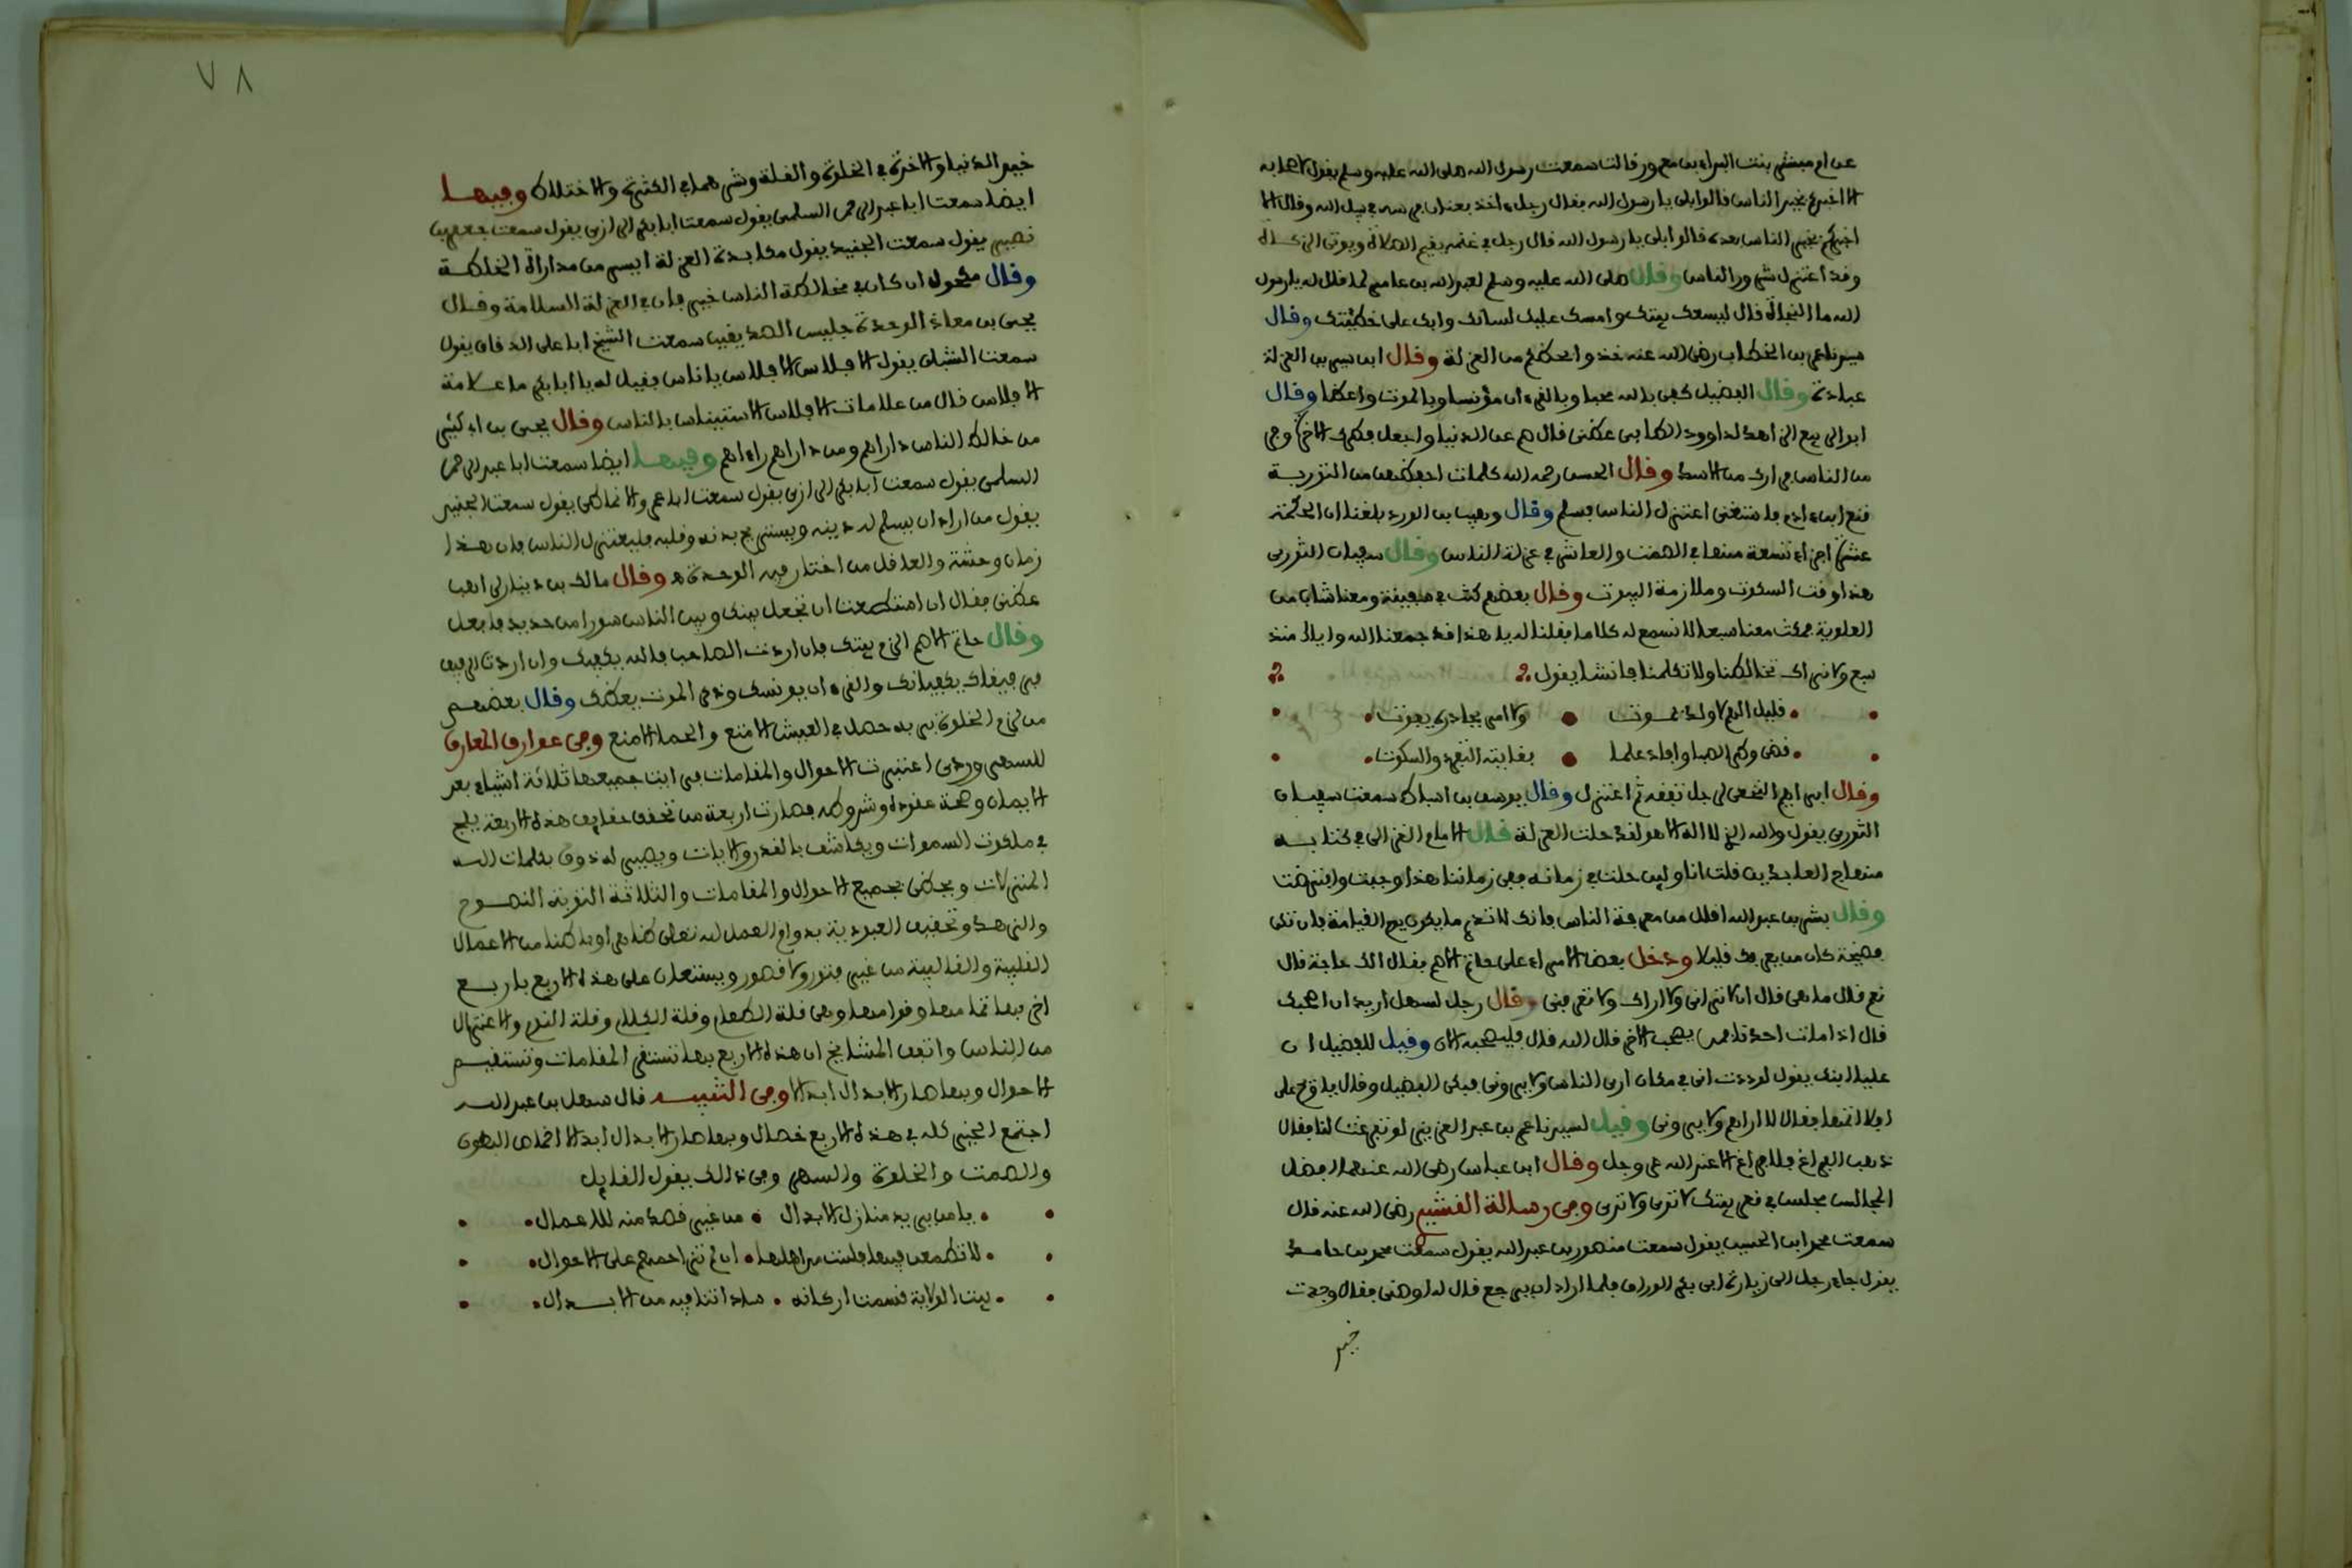 عن ام مبشر بنت البراء بن معرور قالت سمعت رسول الله صلى الله عليه وسلم يقول لاصحابه
الا اخبركم بخير الناس قالوا بلى يا رسول الله فقال رجل اخذ بعنان فرسه في سبيل الله وقال الا
اخبركم بخير الناس بعده قالوا بلى يا رسول الله قال رجل في غنمه يقيم الصلاة ويوتي الزكاة
وقد اعتزل شرور الناس وقال صلى الله عليه وسلم لعبد الله بن عامر لما قال له يا رسول
الله ما النجاة قال ليسعك بيتك وامسك عليك لسانك وابك على خطيئتك وقال
سيدنا عمر بن الخطاب رضي الله عنه خذوا بحظكم من العزلة وقال ابن سيرين العزلة
عبادة وقال الفضيل كفى بالله محبا وبالقرءان مؤنسا وبالموت واعظا وقال
ابو الربيع الزاهد لداوود الطاءي عظني قال صم عن الدنيا واجعل فطرك الاخرة وفر
من الناس فرارك من الاسد وقال الحسن رحمه الله كلمات احفظهن من التورية
قنع ابن ءادم فاستغنى اعتزل الناس فسلم وقال وهيب بن الورد بلغنا ان الحكمة
عشرة اجزاء تسعة منها في الصمت والعاشر في عزلة الناس وقال سفيان الثوري
هذا وقت السكوت وملازمة البيوت وقال بعضهم كنت في سفينة ومعنا شاب من
العلوية فمكث معنا سبعا لا نسمع له كلاما فقلنا له يا هذا قد جمعنا الله واياك منذ
سبع ولا نراك تخالطنا ولا تكلمنا فانشا يقول
قليل الهم لا ولد يموت ولا امر يحاذره يفوت
قضى وطر الصبا وافاد علما فغايته التفرد والسكوت
وقال ابراهيم النخعي لرجل تفقه ثم اعتزل وقال يوسف بن اسباط سمعت سفيان
الثوري يقول والله الذي لا اله الا هو لقد حلت العزلة قال الامام الغزالي في كتابه
منهاج العابدين قلت انا ولين حلت في زمانه ففي زماننا هذا وجبت وافترضت
وقال بشر بن عبد الله اقلل من معرفة الناس فانك لا تدري ما يكون يوم القيامة فان تكن
فضيحة كان من يعرفك قليلا ودخل بعض الامراء على حاتم الاصم فقال الك حاجة قال
نعم قال ما هي قال ان لا تراني ولا اراك ولا تعرفني وقال رجل لسهل اريد ان اصحبك
قال اذا مات احدنا فمن يصحب الاخر قال الله قال فليصحبه الان وقيل للفضيل ان
عليا ابنك يقول لوددت اني في مكان ارى الناس ولا يروني فبكى الفضيل وقال يا ويح علي
افلا اتمها فقال لا اراهم ولا يروني وقيل لسيدنا عمر بن عبد العزيز لو تفرغت لنا فقال
ذهب الفراغ فلا فراغ الا عند الله عز وجل وقال ابن عباس رضي الله عنهما افضل
المجالس مجلس في قعر بيتك لا ترى ولا ترى وفي رسالة القشيري رضي الله عنه قال
سمعت محمد ابن الحسين يقول سمعت منصور بن عبد الله يقول سمعت محمد بن حامد
يقول جاء رجل الى زيارة ابي بكر الوراق فلما اراد ان يرجع قال له اوصني فقال وجدت
خير
٧٨
خير الدنيا والاخرة في الخلوة والقلة وشرهما في الكثرة والاختلاط وفيها
ايضا سمعت ابا عبد الرحمن السلمي يقول سمعت ابا بكر الرازي يقول سمعت جعفر بن
نصير يقول سمعت الجنيد يقول مكابدة العزلة ايسر من مداراة الخلطة
وقال مكحول ان كان في مخالطة الناس خير فان في العزلة السلامة وقال
يحيى بن معاذ الوحدة جليس الصديقين سمعت الشيخ ابا علي الدقاق يقول
سمعت الشبلي يقول الافلاس الافلاس يا ناس فقيل له يا ابا بكر ما علامة
الافلاس قال من علامات الافلاس الاستيناس بالناس وقال يحيى بن ابي كثير
من خالط الناس داراهم ومن داراهم راءاهم وفيها ايضا سمعت ابا عبد الرحمن
السلمي يقول سمعت ابا بكر الرازي يقول سمعت ابا عمر والانماطي يقول سمعت الجنيد
يقول من اراد ان يسلم له دينه ويستريح بدنه وقلبه فليعتزل الناس فان هذا
زمان وحشة والعاقل من اختار فيه الوحدة وقال مالك بن دينار لراهب
عظني فقال ان استطعت ان تجعل بينك وبين الناس سورا من حديد فافعل
وقال حاتم الاصم الزم بيتك فان اردت الصاحب فالله يكفيك وان اردت الرفيق
فرفيقاك يكفيانك والقرءان يونسك وذكر الموت يعظك وقال بعضهم
من لزم الخلوة بربه حصل في العيش الامتع والحما الامنع وفي عوارف المعارف
للسهروردي اعتبرت الاحوال والمقامات فرايت جميعها ثلاثة اشياء بعد
الايمان وصحة عقوده وشروطه فصارت اربعة من تحقق بحقايق هذه الاربعة يلج
في ملكوت السموات ويكاشف بالقدر والايات ويصير له ذوق بكلمات الله
المنزلات ويحظى بجميع الاحوال والمقامات والثلاثة التوبة النصوح
والزهد وتحقيق العبودية بدوام العمل لله تعلى ظاهرا وباطنا من الاعمال
القلبية والقالبية من غير فتور ولا قصور ويستعان على هذه الاربع باربع
اخر بها تمامها وقوامها وهي قلة الطعام وقلة الكلام وقلة النوم والاعتزال
من الناس واتفق المشايخ ان هذه الاربع بها تستقر المقامات وتستقيم
الاحوال وبها صار الابدال ابدالا وفي التنبيه قال سهل بن عبد الله
اجتمع الخير كله في هذه الاربع خصال وبها صار الابدال ابدالا اخماص البطون
والصمت والخلوة والسهر وفي ذالك يقول القايل
يا من يريد منازل الابدال من غير قصد منه للاعمال
لا تطمعن فيها فلست من اهلها ان لم تزاحمهم على الاحوال
بيت الولاية قسمت اركانه ساداتنا فيه من الابدال